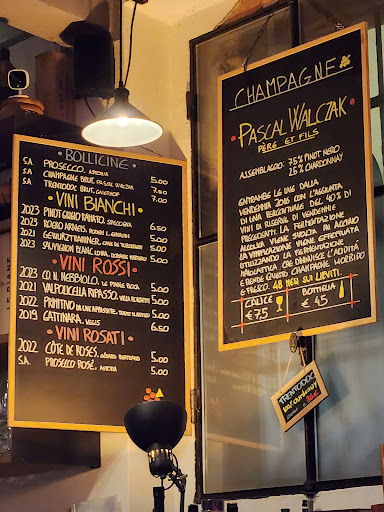 BOLLICINE
S.A. PROSECCO, ASTORIA 5.00
S.A. CHAMPAGNE BRUT, PASCAL WALCZAK 7.50
S.A. TRENTODOC BRUT, 7.00
VINI BIANCHI
2023 PINOT GRIGIO RAMATO, 5.00
2023 ROERO ARNEIS, 5.00
2021 GEWÜRZTRAMINER, 5.00
2023 SAUVIGNON BLANC, 5.00
VINI ROSSI
2023 CO. N. NEBBIOLO, LE PIANE BOCA 5.00
2021 VALPOLICELLA RIPASSO, 5.00
2022 PRIMITIVO 5.00
2019 GATTINARA, 6.50
VINI ROSATI
2022 CÔTE DE ROSES, GÉRARD BERTRAND 5.00
S.A. PROSECCO ROSÉ, ASTORIA 5.00
CHAMPAGNE
PASCAL WALCZAK
PÈRE ET FILS
ASSEMBLAGGIO: 75% PINOT NERO
25% CHARDONNAY
ENTRAMBE LE UVE DALLA
VENDEMMIA 2016 CON L'AGGIUNTA
DI UNA PERCENTUALE DEL 40% DI
VINI DI RISERVA DI VENDEMMIE
PRECEDENTI. LA FERMENTAZIONE
ALCOLICA VIENE SVOLTA IN ACCIAIO
LA VINIFICAZIONE VIENE EFFETTUATA
UTILIZZANDO LA FERMENTAZIONE
MALOLATTICA CHE DIMINUISCE L'ACIDITÀ
E RENDE QUESTO CHAMPAGNE MORBIDO
E FRESCO. 48 MESI SUI LIEVITI.
CALICE BOTTIGLIA
€ 7,5 € 45
TRENTODOC
100% CHARDONNAY
36€